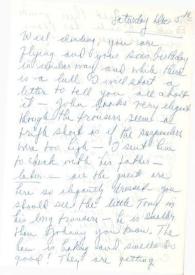 Saturday Dec 5th
Well darling, you are
flying and your
in and while there
is a lull I will start a
letter to tell you all about
it — John looks very elegant
though the trousers seem a
trifle short as if the suspenders
were too high — I sent him
to speak with his father —
later — all the guests are
here so elegantly dressed you
should see the little Tony in
his long trousers — he is smaller
than Johnny you know. The
ham is baking and smells so
good! They are getting